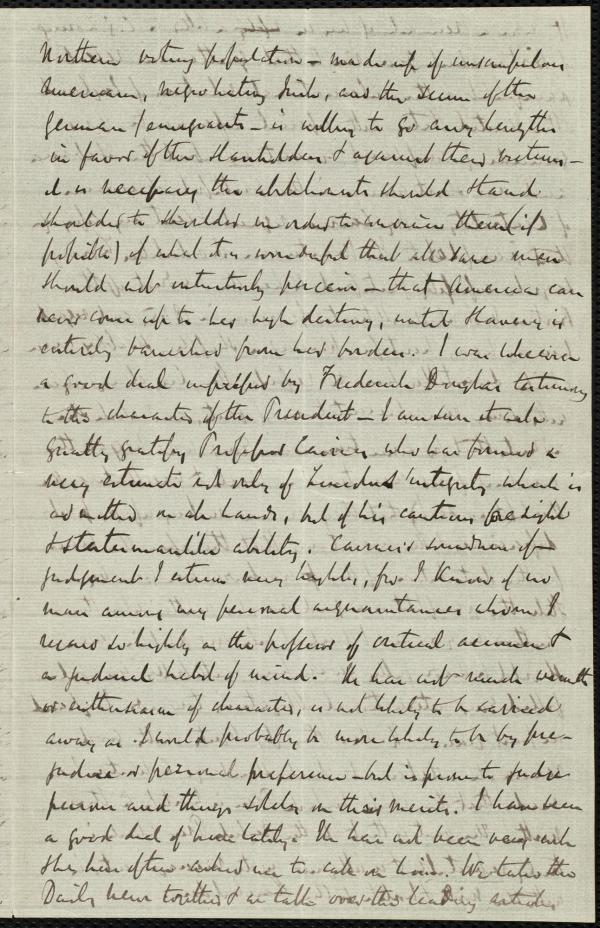 Northern voting population – made up of unscrupulous
Americans, negro hating Irish, and the scum of the
German emigrants – is willing to go any lengths
in favor of the slaveholders & against their victims –
it is necessary the abolitionists should stand
shoulder to shoulder in order to convince them (if
possible) of what it is wonderful that all sane men
should not intuitively perceive – that America can
never come up to her high destiny, until slavery is
entirely banished from her borders. I was likewise
a good deal impressed by Frederick Douglas testimony
to the character of the President – I am sure it will
greatly gratify Professor Cairnes who has formed a
very estimate not only of Lincoln's integrity which is
admitted on all hands, but of his cautious foresight
& statesmanlike ability. Cairnes's soundness of
judgment I esteem very highly, for I know of no
man among my personal acquaintances whom I
regard so highly as the possessor of critical acumen &
a judicial habit of mind. He has not much warmth
or enthusiasm of character, is not likely to be carried
away as I would probably be more likely to be by pre-
judice or personal preference – but is prone to judge
persons and things solely on their merits. I have seen
a good deal of him lately. He has not been very well
& has often asked me to call on him. We take the
Daily News together & we talk over the leading articles,